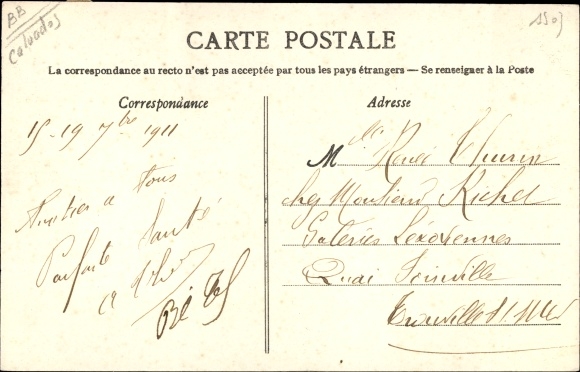 BB
Calvados
1503
CARTE POSTALE
La correspondance au recto n'est pas acceptée par tous les pays étrangers — Se renseigner à la Poste
Correspondance
Adresse
15-19 7bre 1911
Amitiés a tous
Parfaite Santé
a
Mlle Renée
chez Monsieur Richel
Galeries Lexoviennes
Quai Joinville
Trouville s/ Mer